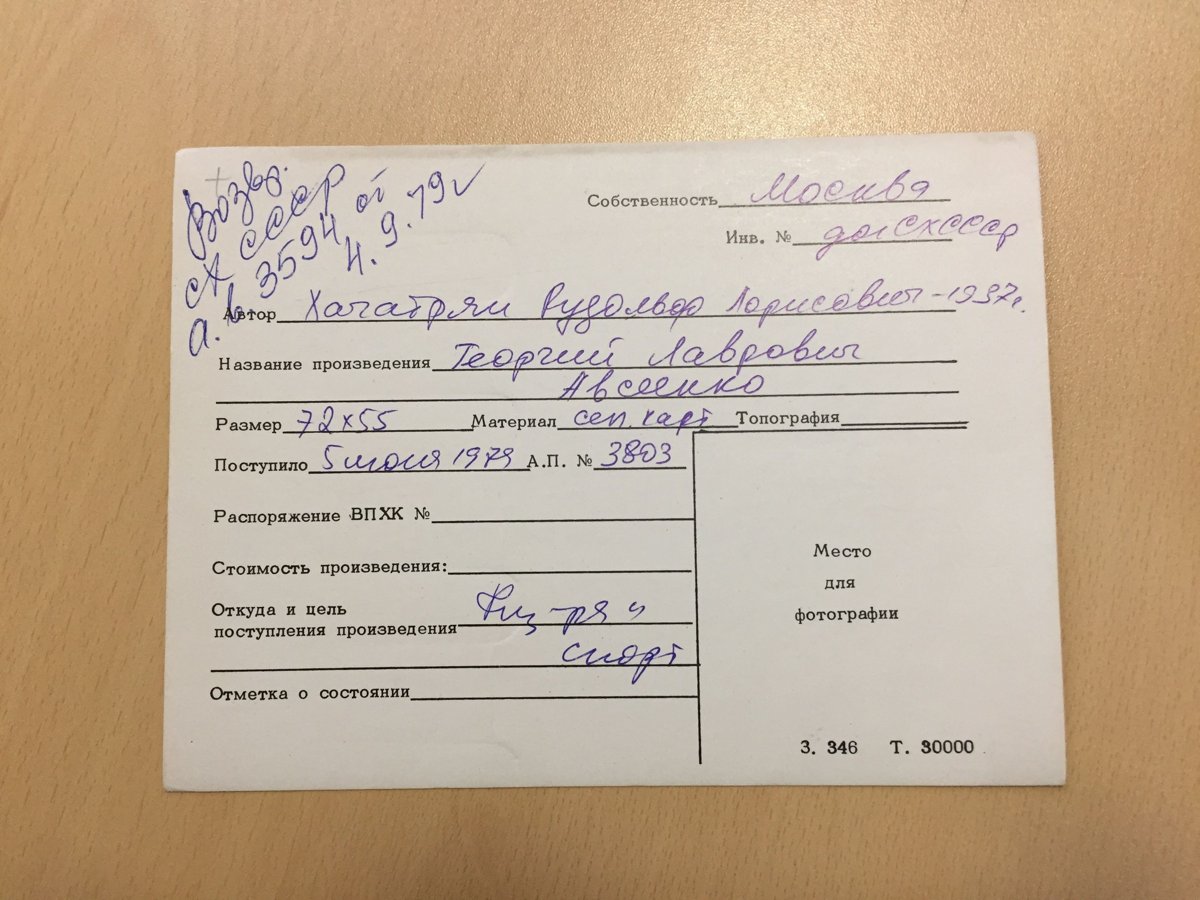 Возвр.
СХ СССР
а.в 3594 от
4.9.79 г
Собственность Москва
Инв. № дог СХСССР
Автор Хачатрян Рудольф Лорисович-1937г.
Название произведения Георгий Лаврович
Авсеенко
Размер 72х55 Материал сеп. карт Топография
Поступило 5 июня 1979 А.П. № 3803
Распоряжение ВПХК №
Стоимость произведения:
Откуда и цель
поступления произведения
спорт
Отметка о состоянии
Место
для
фотографии
З. 346 Т. 30000